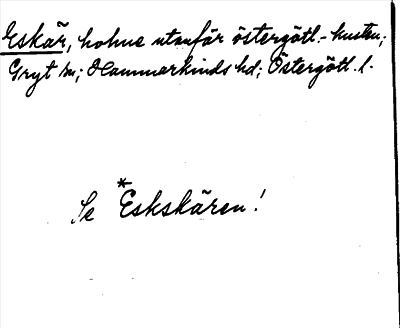 Eskär, holme utanför östergötl.-kusten;
Gryt sn; Hammarkinds hd; Östergötl. l.
Se *Eskskären!